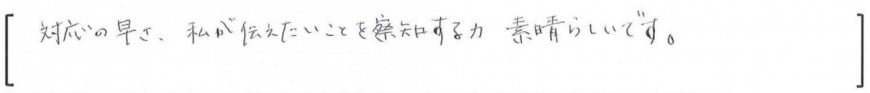 対応の早さ、私が伝えたいことを察知する力 素晴らしいです。